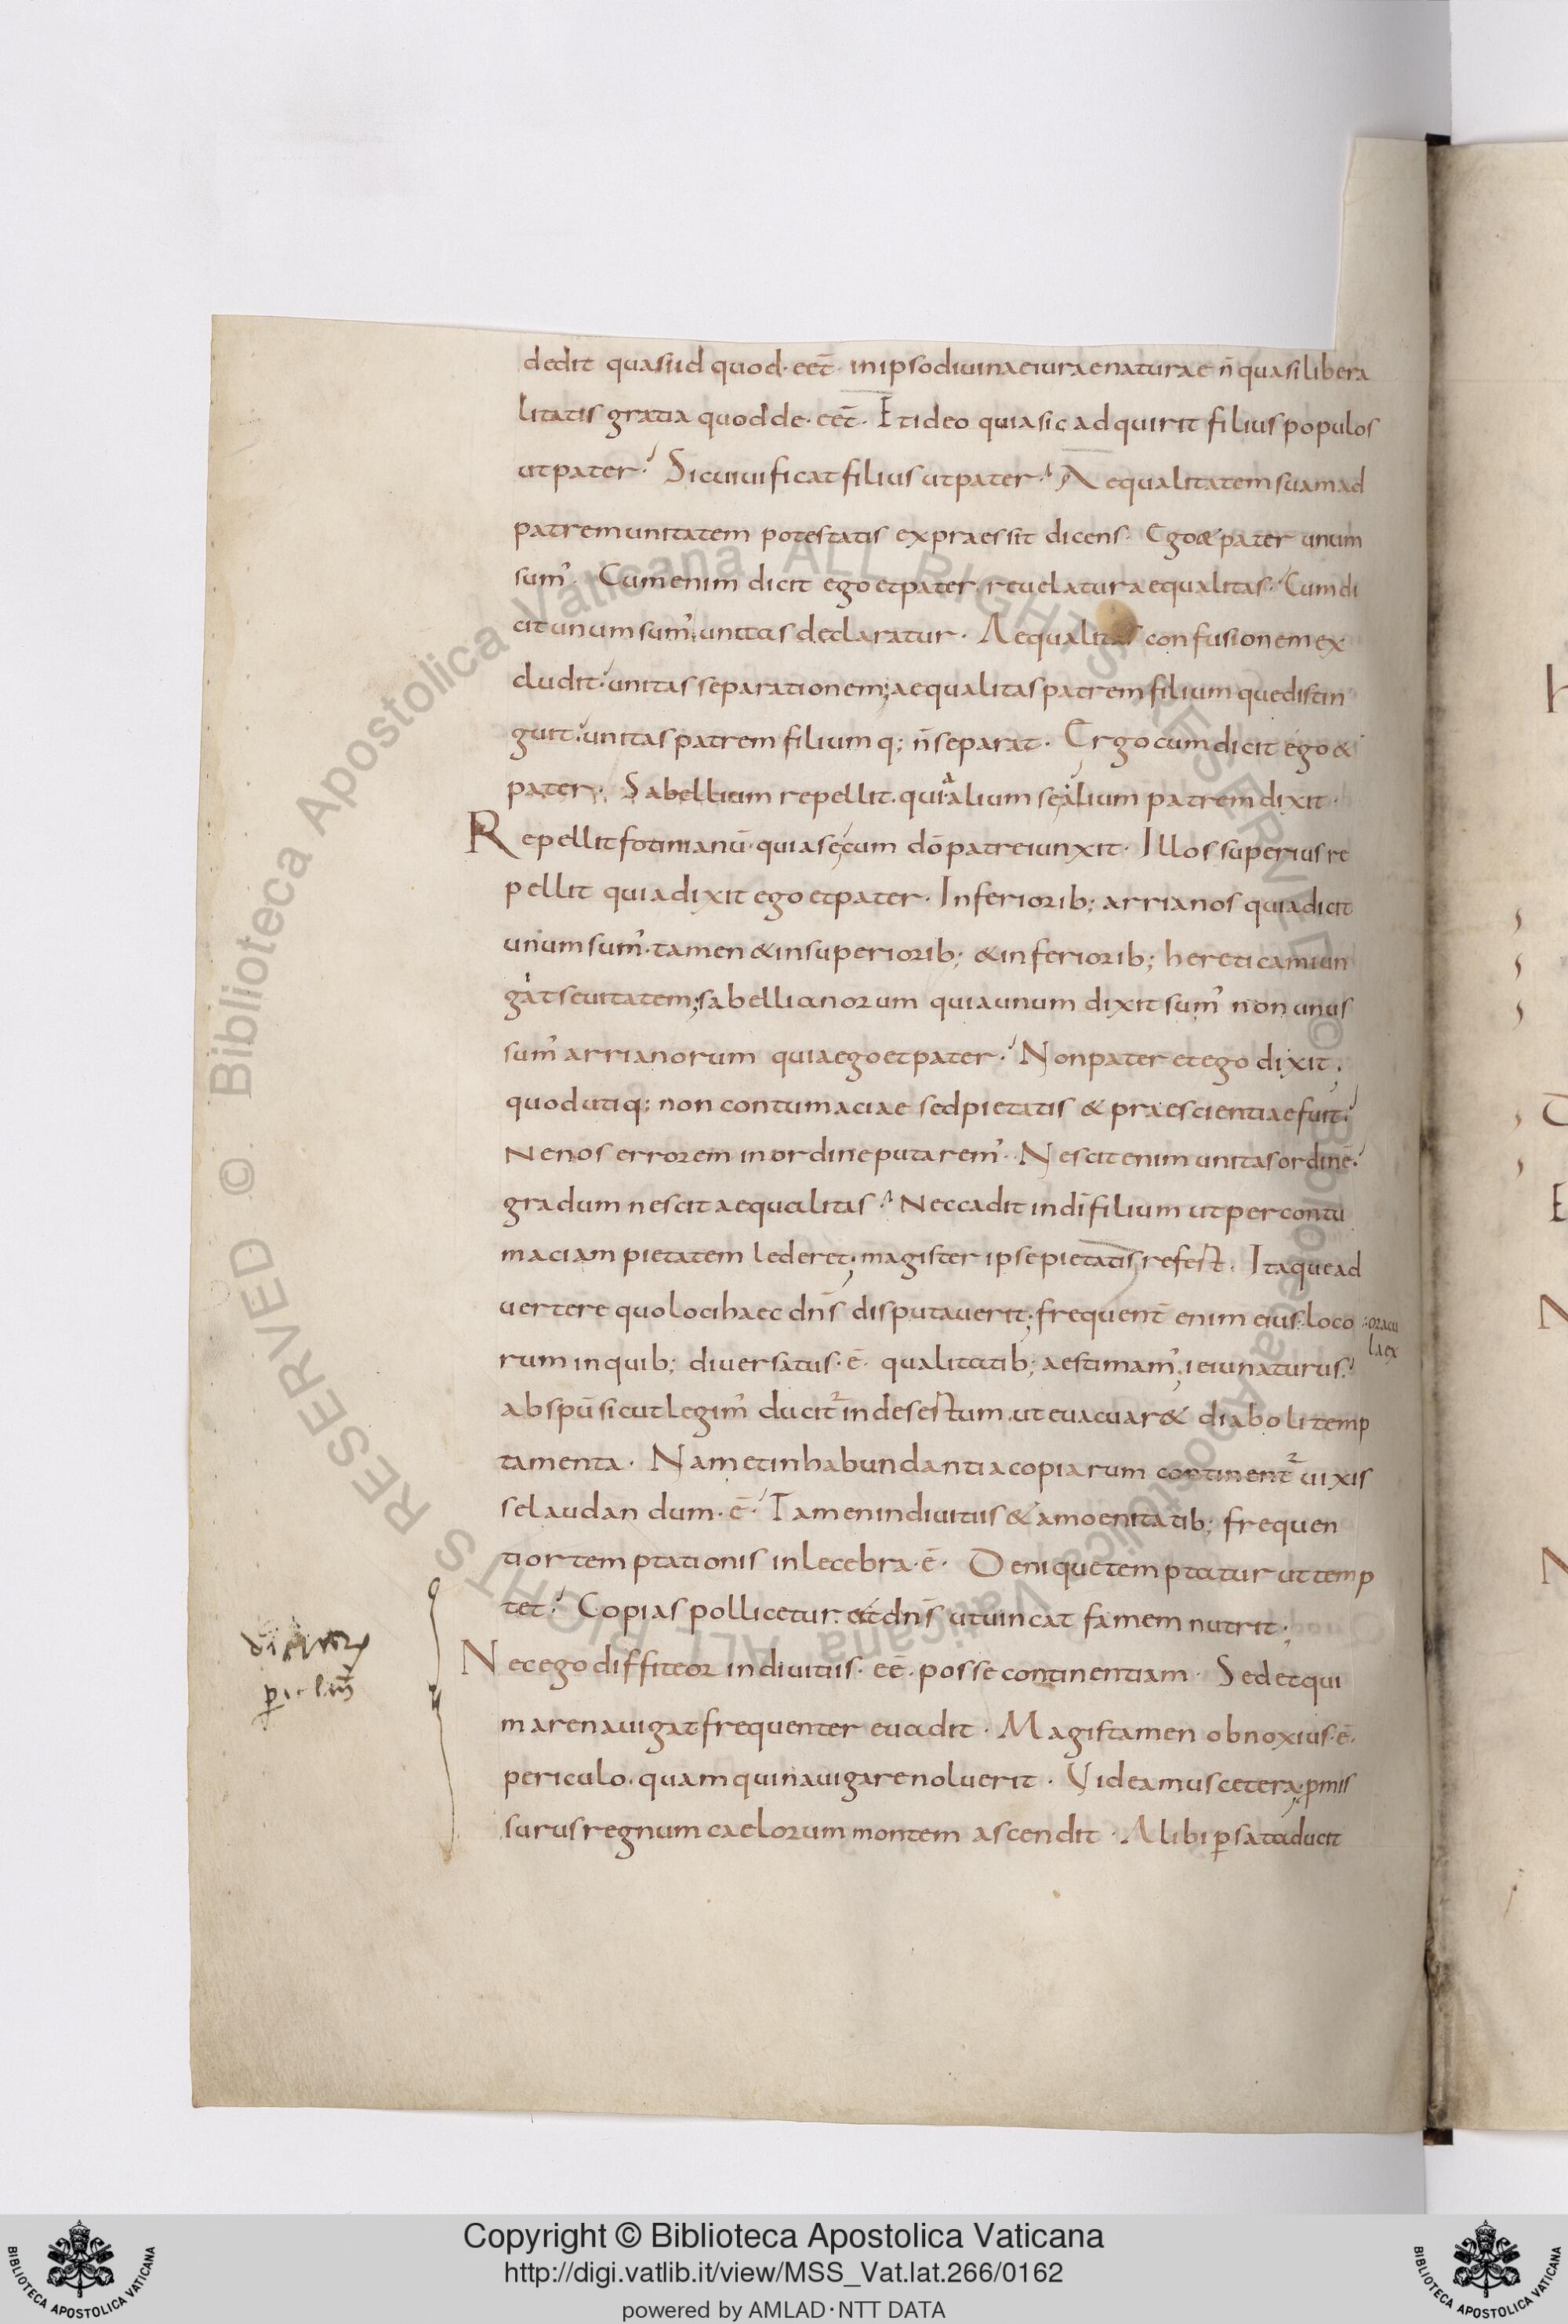 dedit quasi id quod · eēt · in ipso divinae iurae naturae n̄ quasi libera
litatis gratia quod de · eēt · Et ideo quia sic adquirit filius populos
ut pater · Sic vivificat filius ut pater · Aequalitatem suam ad
patrem unitatem potestatis expraessit dicens · Ego & pater unum
sum' · Cum enim dicit ego et pater · revelatur aequalitas · Cum di
cit unum sum' · unitas declaratur · Aequalitas confusionem ex
cludit · unitas separationem; aequalitas patrem filiumque distin
guit · unitas patrem filiumq; n̄ separat · Ergo cum dicit ego &
pater · Sabellium repellit · quia alium se alium patrem dixit ·
Repellit fotinianū · quia se cum dō patre iunxit · Illos superius re
pellit quia dixit ego et pater · Inferiorib; arrianos quia dicit
unum sum' · tamen & in superiorib; & inferiorib; hereticam iun
gat sevitatem; sabellianorum quia unum dixit sum' non unus
sum' arrianorum quia ego et pater · Non pater et ego dixit ·
quod utiq; non contumaciae sed pietatis & praescientiae fuit ·
Ne nos errorem in ordine putarem' · Nescit enim unitas ordinē ·
gradum nescit aequalitas · Nec cadit in dī filium ut per contu
maciam pietatem lederet; magister ipse pietatis refest · Itaque ad
vertere quo loci haec dn̄s disputaverit; frequent̄ enim eius :· loco
:· oracu
la ex
rum in quib; diversatus · ē · qualitatib; aestimam'; ieiunaturus ·
ab spū sicut legim' ducit' in desertum · ut evacuar& diaboli temp
tamenta · Nam et in habundantia copiarum continent' vixis
se laudandum · ē · Tamen in divitiis & amoenitatib; frequen
tior temptationis inlecebra · ē · Denique temptatur ut temp
tet · Copias pollicetur · et dn̄s ut vincat famem nutrit ·
Nec ego diffiteor in divitiis · eē · posse continentiam · Sed et qui
mare navigat frequenter evadit · Magis tamen obnoxius · ē ·
periculo · quam qui navigare noluerit · Videamus cetera; p̄mis
surus regnum caelorum montem ascendit · Alibi p sata ducit
Copyright © Biblioteca Apostolica Vaticana
http://digi.vatlib.it/view/MSS_Vat.lat.266/0162
powered by AMLAD·NTT DATA
BIBLIOTECA APOSTOLICA VATICANA
BIBLIOTECA APOSTOLICA VATICANA
© Biblioteca Apostolica Vaticana ALL RIGHTS RESERVED
© Biblioteca Apostolica Vaticana ALL RIGHTS RESERVED